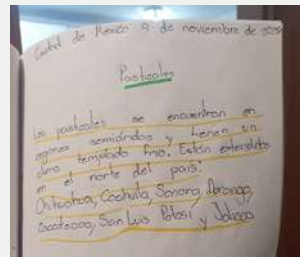 Ciudad de México 9 de noviembre de
Pastizales
los pastizales se encuentran en
regiones semiáridas y tienen un
clima templado frio. Están extendidos
en el norte del país:
Chihuahua, Coahuila, Sonora, Durango,
Zacatecas, San Luis Potosí y Jalisco